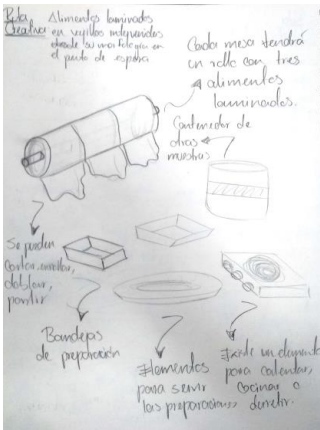 Ruta
Creativa
Alimentos laminados
en vajillas independientes
desde su morfología en
el punto de espera
Cada mesa tendrá
un rollo con tres
alimentos
laminados.
Contenedor de
otras
muestras
Se pueden
cortar, enrollar,
doblar,
partir
Bandejas
de preparación
Elementos
para servir
las preparaciones
Existe un elemento
para calentar,
cocinar o
derretir.